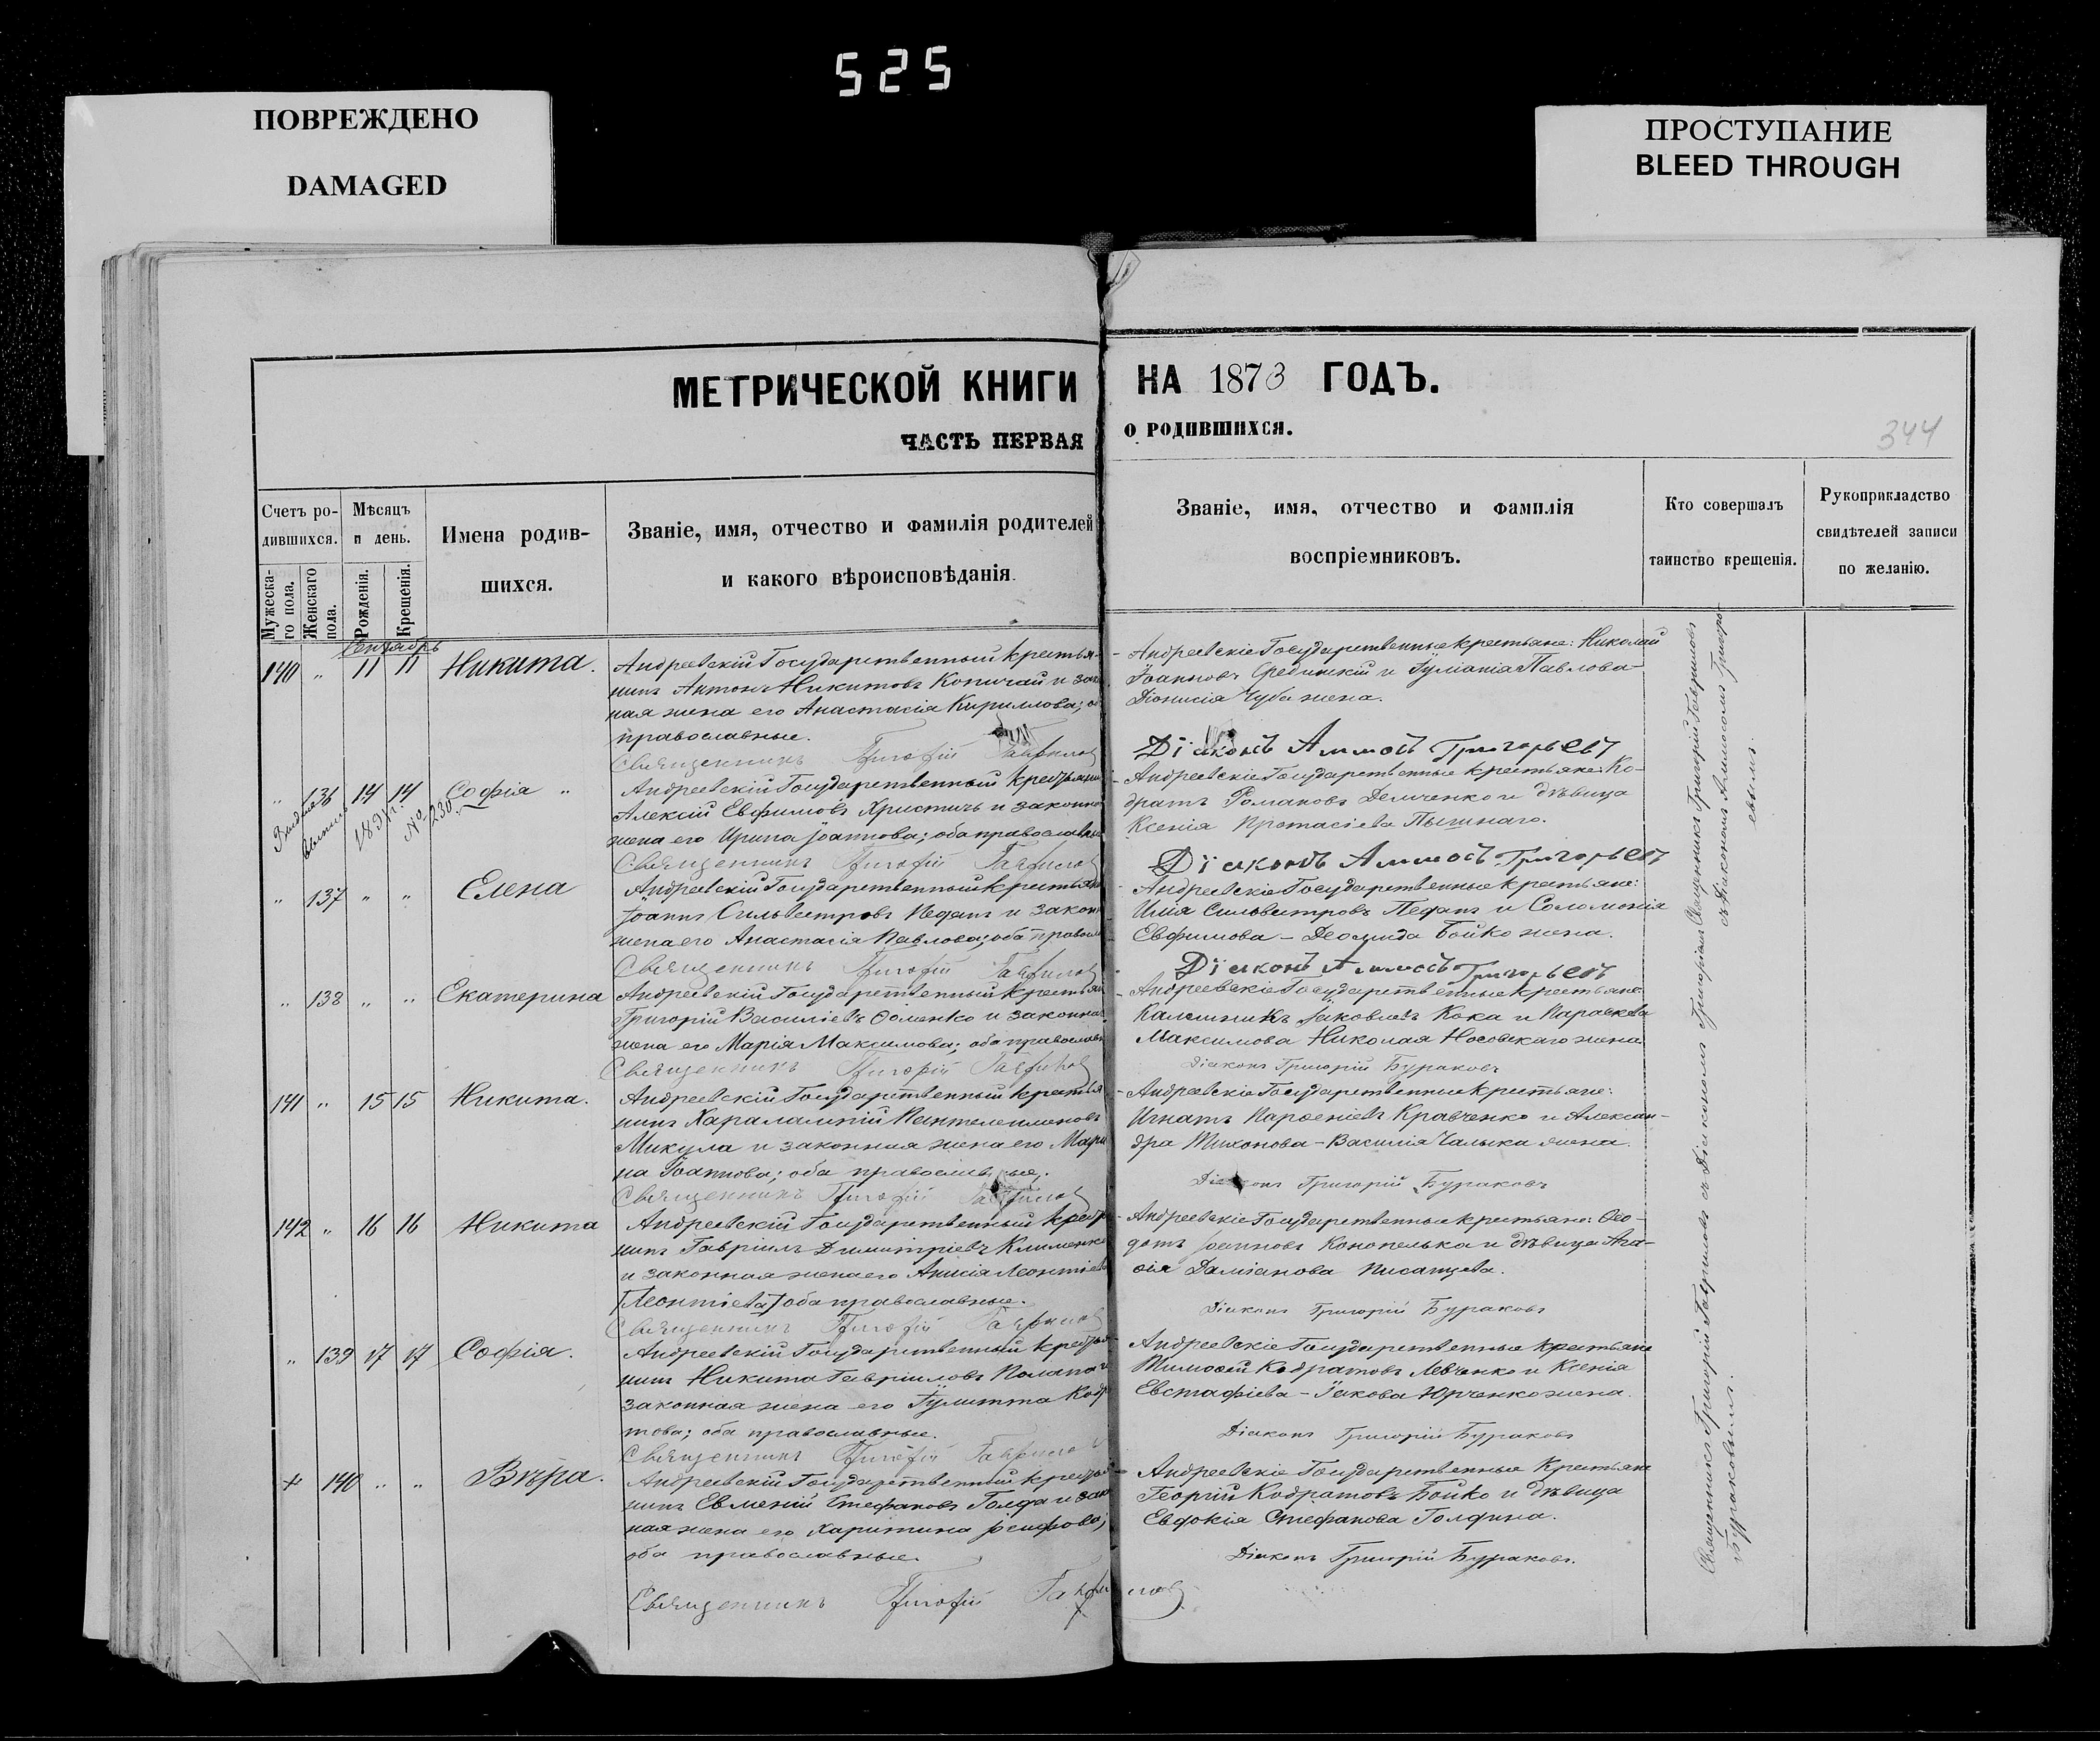 525
ПОВРЕЖДЕНО
DAMAGED
ПРОСТУПАНИЕ
BLEED THROUGH
МЕТРИЧЕСКОЙ КНИГИ НА 1873 ГОДЪ.
ЧАСТЬ ПЕРВАЯ О РОДИВШИХСЯ.
344
Счетъ ро-
дившихся.
Мужеска-
го пола.
Женскаго
пола.
Мѣсяцъ
и день.
Рожденія.
Крещенія.
Имена родив-
шихся.
Званіе, имя, отчество и фамилія родителей
и какого вѣроисповѣданія.
Званіе, имя, отчество и фамилія
воспріемниковъ.
Кто совершалъ
таинство крещенія.
Рукоприкладство
свидѣтелей записи
по желанію.
Сентябрь
140 " 11 11 Никита.
Андреевскій Государственный крестья-
нинъ Антонъ Никитовъ Копичай и зак
ная жена его Анастасія Кириллова; о
православные.
Священникъ Григорій Гаврилов
Андреевскіе Государственные крестьяне: Николай
Іоанновъ Срединскій и Іуліанія Павлова
Діонисія Чуба жена.
Діаконъ Аммосъ Григорьевъ
" 136 14 14 Софія "
189 г. № 230.
Андреевскій Государственный крестьяни
Алексій Евфимовъ Христичъ и законна
жена его Ирина Іоаннова; оба православны
Священникъ Григорій Гаврилов
Андреевскіе Государственные крестьяне: Ко-
дратъ Романовъ Демченко и дѣвица
Ксенія Протасіева Пышнаго.
Діаконъ Аммосъ Григорьевъ
" 137 " " Елена
Андреевскій Государственный крестьян
Іоаннъ Сильвестровъ Педанъ и законн
жена его Анастасія Павлова; оба правосл
Священникъ Григорій Гаврилов
Андреевскіе Государственные крестьяне:
Илія Сильвестровъ Педанъ и Соломонія
Евфимова - Деомида Бойко жена.
Діаконъ Аммосъ Григорьевъ
" 138 " " Екатерина
Андреевскій Государственный крестьян
Григорій Василіевъ Ѳоменко и законна
жена его Марія Максимова; оба православн
Священникъ Григорій Гаврилов
Андреевскіе Государственные крестьяне:
Калинникъ Іаковлевъ Кока и Параскева
Максимова Николая Носовскаго жена
Діаконъ Григорій Бураковъ
141 " 15 15 Никита.
Андреевскій Государственный крестья
нинъ Харалампій Пантелеимоновъ
Микула и законная жена его Мари
на Іоаннова; оба православные.
Священникъ Григорій Гаврилов
Андреевскіе Государственные крестьяне:
Игнатъ Парѳеніевъ Кравченко и Алексан-
дра Тихонова - Василія Чалыка жена.
Діаконъ Григорій Бураковъ
142 " 16 16 Никита
Андреевскій Государственный крестья
нинъ Гавріилъ Димитріевъ Клименко
и законная жена его Анисія Леонтіева
[Леонтіева] оба православные.
Священникъ Григорій Гаврилов
Андреевскіе Государственные крестьяне: Ѳео-
дотъ Іоанновъ Конопелька и дѣвица Ага-
ѳія Даміанова Писанцева.
Діаконъ Григорій Бураковъ
" 139 17 17 Софія.
Андреевскій Государственный крестья
нинъ Никита Гавріиловъ Полапа и
законная жена его Іулитта Кодр
това; оба православные.
Священникъ Григорій Гаврилов
Андреевскіе Государственные крестьяне
Тимоѳей Кодратовъ Левченко и Ксенія
Евстафіева - Іакова Юрченко жена.
Діаконъ Григорій Бураковъ
+ 140 " " Вѣра.
Андреевскій Государственный крестья
нинъ Евменій Стефановъ Голфа и зак
ная жена его Харитина Іосифова;
оба православные.
Священникъ Григорій Гаврилов
Андреевскіе Государственные Крестьяне
Георгій Кодратовъ Бойко и дѣвица
Евдокія Стефанова Голфина.
Діаконъ Григорій Бураковъ.
Священникъ Григорій Гавриловъ
съ Діакономъ Аммосомъ Григорь-
евымъ.
Священникъ Григорій Гавриловъ съ Діакономъ Григоріемъ
Бураковымъ.